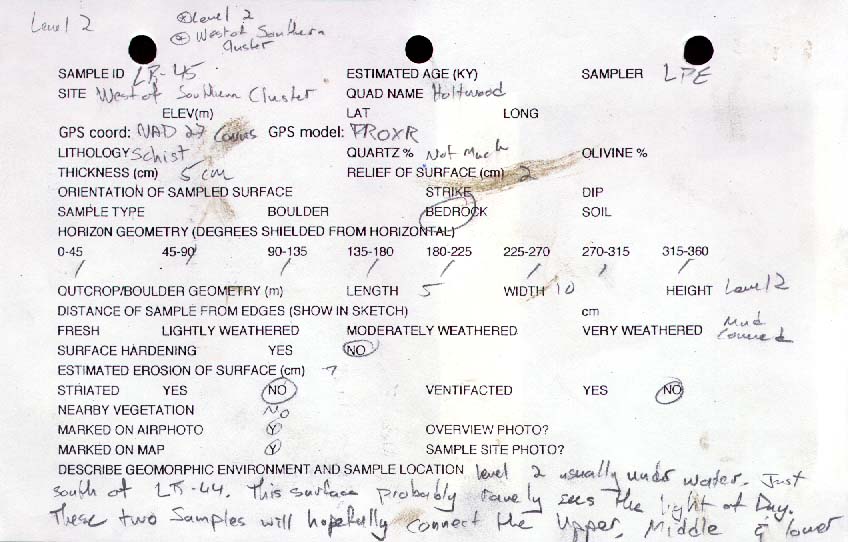 Level 2
⊙ Level 2
⊙ West of Southern
Cluster
SAMPLE ID LR-45 ESTIMATED AGE (KY) SAMPLER LPE
SITE West of Southern Cluster QUAD NAME Holtwood
ELEV(m) LAT LONG
GPS coord: NAD 27 Conus GPS model: PROXR
LITHOLOGY Schist QUARTZ % Not Much OLIVINE %
THICKNESS (cm) 5 cm RELIEF OF SURFACE (cm) 2
ORIENTATION OF SAMPLED SURFACE STRIKE DIP
SAMPLE TYPE BOULDER BEDROCK SOIL
HORIZON GEOMETRY (DEGREES SHIELDED FROM HORIZONTAL)
0-45 45-90 90-135 135-180 180-225 225-270 270-315 315-360
/ / / / / / / /
OUTCROP/BOULDER GEOMETRY (m) LENGTH 5 WIDTH 10 HEIGHT Level 2
DISTANCE OF SAMPLE FROM EDGES (SHOW IN SKETCH) cm
FRESH LIGHTLY WEATHERED MODERATELY WEATHERED VERY WEATHERED Mud
SURFACE HARDENING YES NO
ESTIMATED EROSION OF SURFACE (cm) ?
STRIATED YES NO VENTIFACTED YES NO
NEARBY VEGETATION NO
MARKED ON AIRPHOTO Y OVERVIEW PHOTO?
MARKED ON MAP Y SAMPLE SITE PHOTO?
DESCRIBE GEOMORPHIC ENVIRONMENT AND SAMPLE LOCATION level 2 usually under water. Just
south of LR-44. This surface probably rarely sees the light of Day.
These two Samples will hopefully connect the Upper, Middle & lower